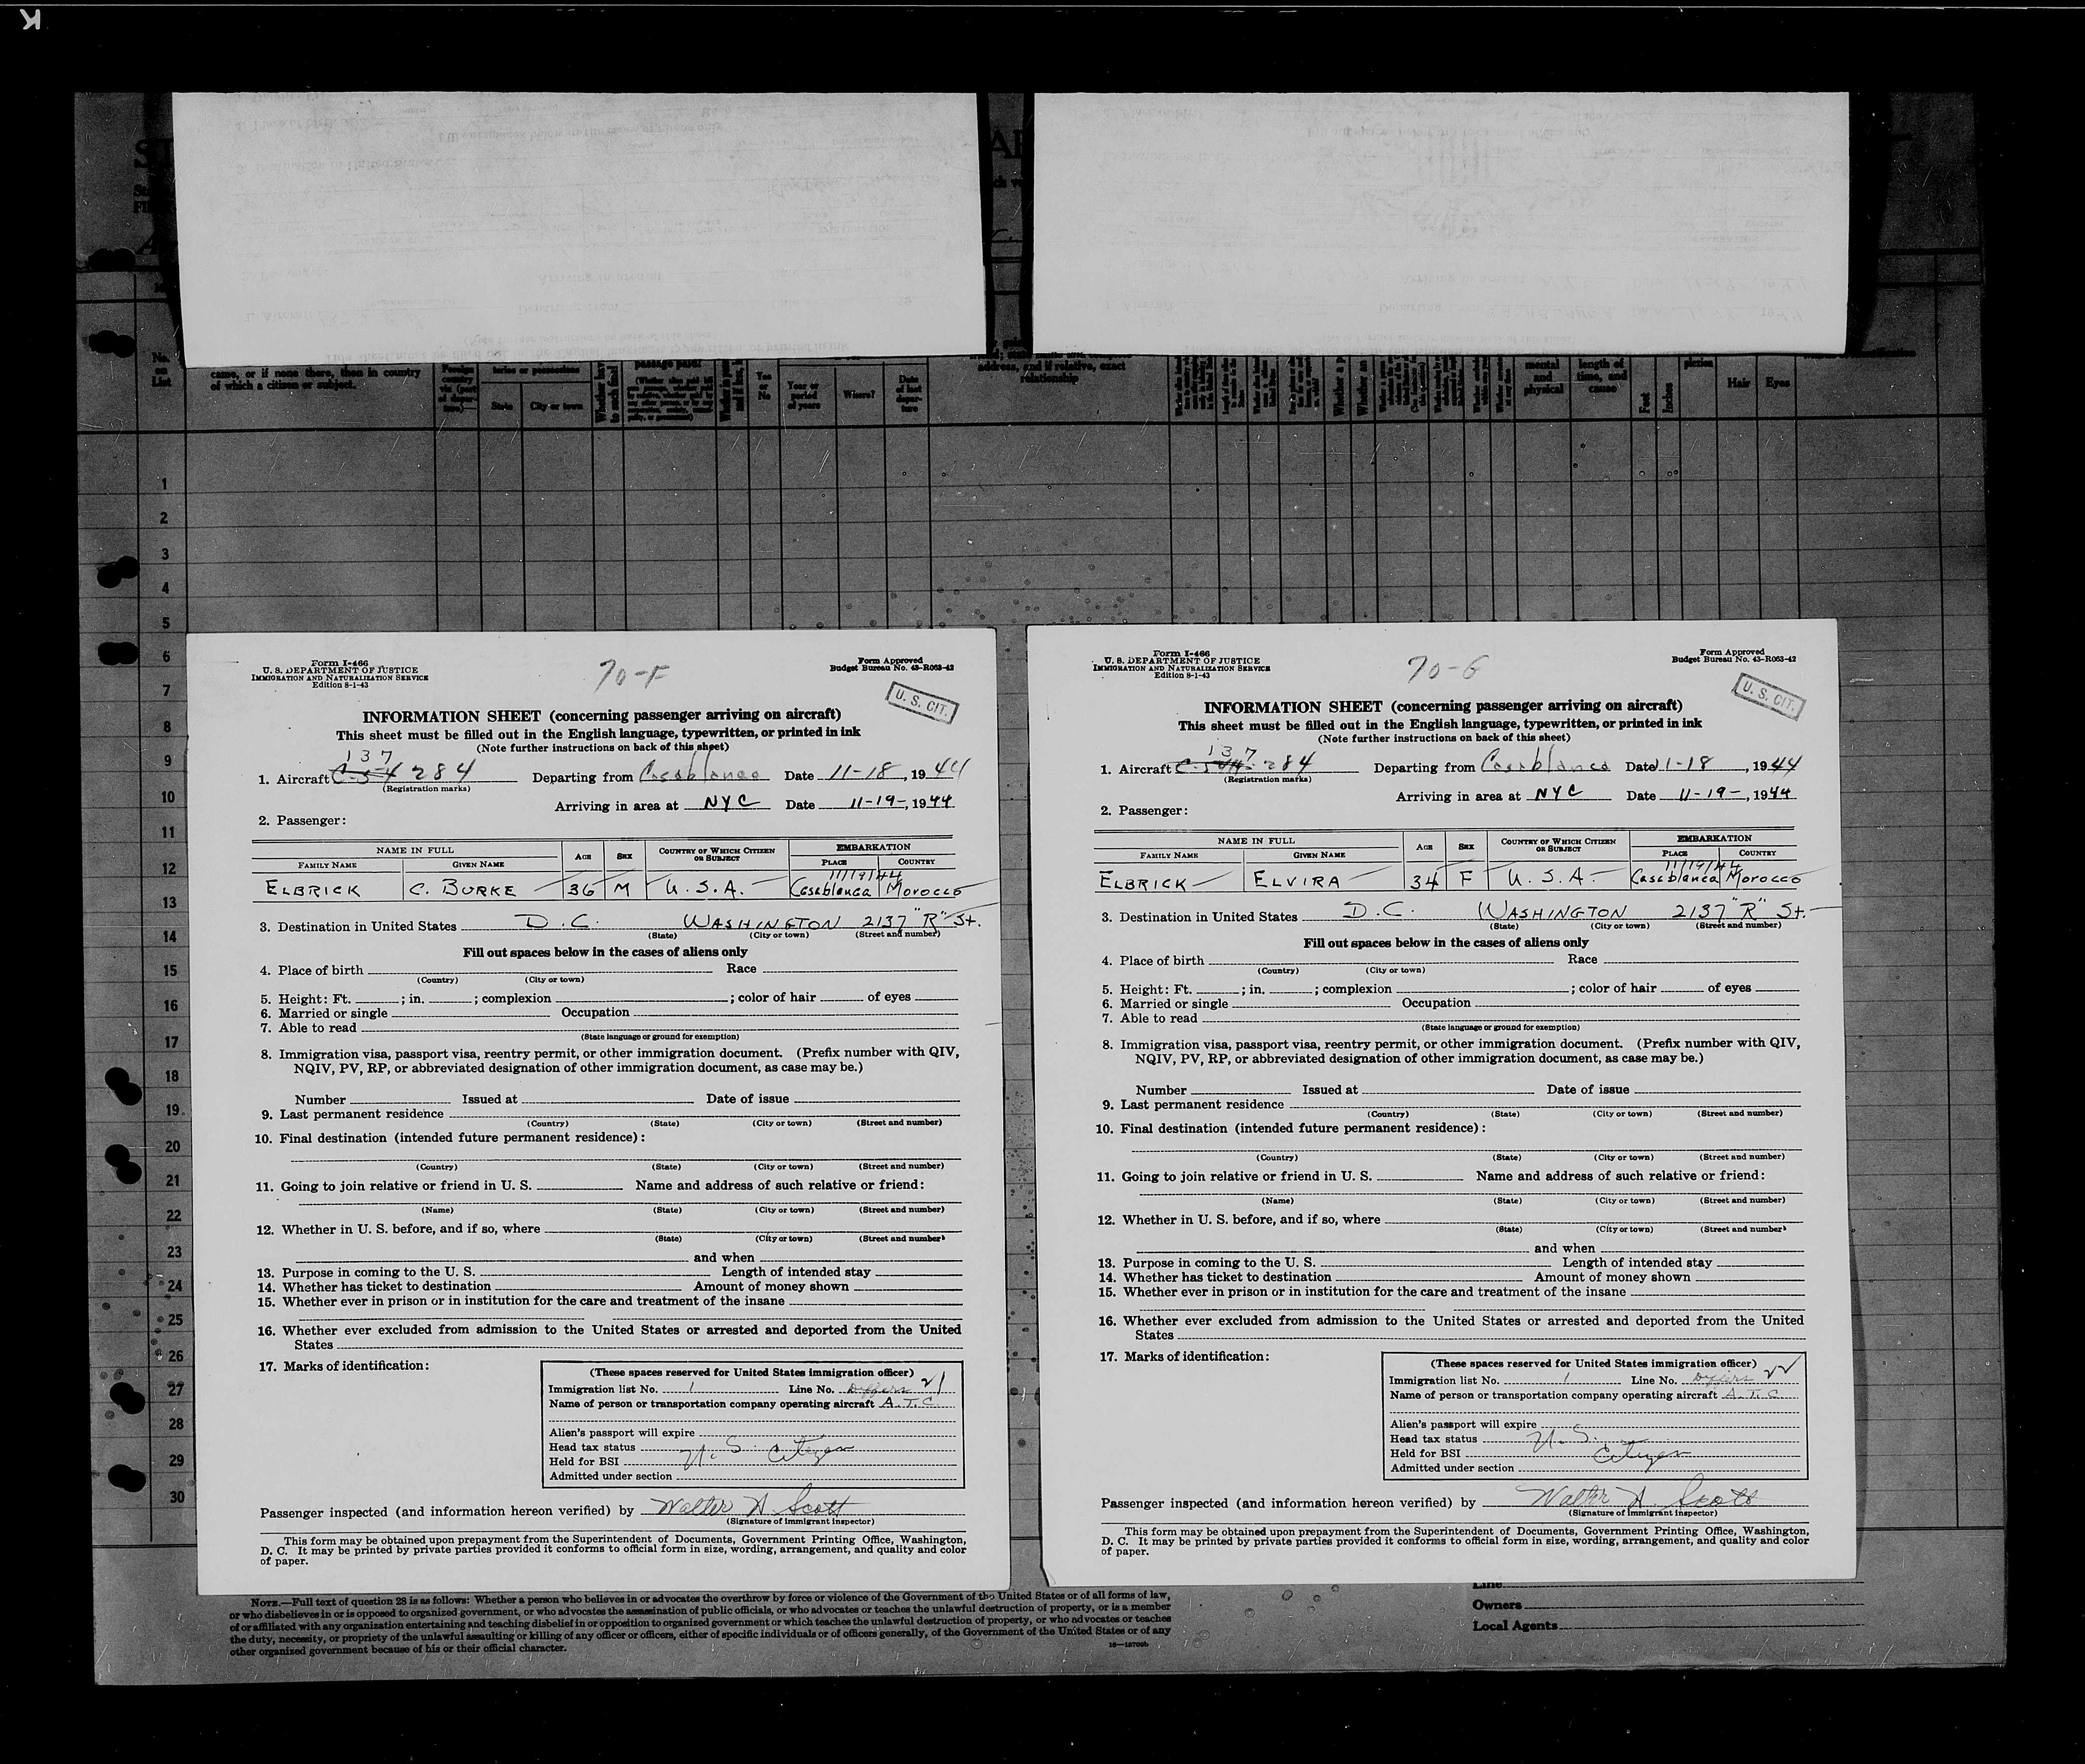 K
No.
on
List
came, or if none there, then in country
of which a citizen or subject.
State
City or town
Yes
or
No
Year or
period
of years
Where?
Date
of last
depar-
ture
address, and if relative, exact
relationship
mental
and
physical
length of
time, and
cause
Feet
Inches
Hair
Eyes
1
2
3
4
5
6
7
8
9
10
11
12
13
14
15
16
17
18
19
20
21
22
23
24
25
26
27
28
29
30
Form I-466
U. S. DEPARTMENT OF JUSTICE
IMMIGRATION AND NATURALIZATION SERVICE
Edition 8-1-43
70-F
Form Approved
Budget Bureau No. 43-R063-42
U. S. CIT.
INFORMATION SHEET (concerning passenger arriving on aircraft)
This sheet must be filled out in the English language, typewritten, or printed in ink
(Note further instructions on back of this sheet)
137
1. Aircraft C-54 284 Departing from Casablanca Date 11-18, 1944
(Registration marks)
Arriving in area at NYC Date 11-19-, 1944
2. Passenger:
NAME IN FULL
FAMILY NAME
GIVEN NAME
AGE
SEX
COUNTRY OF WHICH CITIZEN
OR SUBJECT
EMBARKATION
PLACE
COUNTRY
11/19/44
ELBRICK C. BURKE 36 M U.S.A. Casablanca Morocco
3. Destination in United States D.C. WASHINGTON 2137 "R" St.
(State) (City or town) (Street and number)
Fill out spaces below in the cases of aliens only
4. Place of birth Race
(Country) (City or town)
5. Height: Ft. ; in. ; complexion ; color of hair of eyes
6. Married or single Occupation
7. Able to read
(State language or ground for exemption)
8. Immigration visa, passport visa, reentry permit, or other immigration document. (Prefix number with QIV,
NQIV, PV, RP, or abbreviated designation of other immigration document, as case may be.)
Number Issued at Date of issue
9. Last permanent residence
(Country) (State) (City or town) (Street and number)
10. Final destination (intended future permanent residence):
(Country) (State) (City or town) (Street and number)
11. Going to join relative or friend in U. S. Name and address of such relative or friend:
(Name) (State) (City or town) (Street and number)
12. Whether in U. S. before, and if so, where
(State) (City or town) (Street and number)
and when
13. Purpose in coming to the U. S. Length of intended stay
14. Whether has ticket to destination Amount of money shown
15. Whether ever in prison or in institution for the care and treatment of the insane
16. Whether ever excluded from admission to the United States or arrested and deported from the United
States
17. Marks of identification:
(These spaces reserved for United States immigration officer)
Immigration list No. 1 Line No. 21
Name of person or transportation company operating aircraft A.T.C.
Alien's passport will expire
Head tax status
Held for BSI U.S. Citizen
Admitted under section
Passenger inspected (and information hereon verified) by Walter A. Scott
(Signature of immigrant inspector)
This form may be obtained upon prepayment from the Superintendent of Documents, Government Printing Office, Washington,
D. C. It may be printed by private parties provided it conforms to official form in size, wording, arrangement, and quality and color
of paper.
Form I-466
U. S. DEPARTMENT OF JUSTICE
IMMIGRATION AND NATURALIZATION SERVICE
Edition 8-1-43
70-G
Form Approved
Budget Bureau No. 43-R063-42
U. S. CIT.
INFORMATION SHEET (concerning passenger arriving on aircraft)
This sheet must be filled out in the English language, typewritten, or printed in ink
(Note further instructions on back of this sheet)
137
1. Aircraft C-54 284 Departing from Casablanca Date 11-18, 1944
(Registration marks)
Arriving in area at NYC Date 11-19-, 1944
2. Passenger:
NAME IN FULL
FAMILY NAME
GIVEN NAME
AGE
SEX
COUNTRY OF WHICH CITIZEN
OR SUBJECT
EMBARKATION
PLACE
COUNTRY
11/19/44
ELBRICK ELVIRA 34 F U.S.A. Casablanca Morocco
3. Destination in United States D.C. WASHINGTON 2137 "R" St.
(State) (City or town) (Street and number)
Fill out spaces below in the cases of aliens only
4. Place of birth Race
(Country) (City or town)
5. Height: Ft. ; in. ; complexion ; color of hair of eyes
6. Married or single Occupation
7. Able to read
(State language or ground for exemption)
8. Immigration visa, passport visa, reentry permit, or other immigration document. (Prefix number with QIV,
NQIV, PV, RP, or abbreviated designation of other immigration document, as case may be.)
Number Issued at Date of issue
9. Last permanent residence
(Country) (State) (City or town) (Street and number)
10. Final destination (intended future permanent residence):
(Country) (State) (City or town) (Street and number)
11. Going to join relative or friend in U. S. Name and address of such relative or friend:
(Name) (State) (City or town) (Street and number)
12. Whether in U. S. before, and if so, where
(State) (City or town) (Street and number)
and when
13. Purpose in coming to the U. S. Length of intended stay
14. Whether has ticket to destination Amount of money shown
15. Whether ever in prison or in institution for the care and treatment of the insane
16. Whether ever excluded from admission to the United States or arrested and deported from the United
States
17. Marks of identification:
(These spaces reserved for United States immigration officer)
Immigration list No. 1 Line No. 22
Name of person or transportation company operating aircraft A.T.C.
Alien's passport will expire
Head tax status U.S.
Held for BSI Citizen
Admitted under section
Passenger inspected (and information hereon verified) by Walter A. Scott
(Signature of immigrant inspector)
This form may be obtained upon prepayment from the Superintendent of Documents, Government Printing Office, Washington,
D. C. It may be printed by private parties provided it conforms to official form in size, wording, arrangement, and quality and color
of paper.
NOTE.—Full text of question 28 is as follows: Whether a person who believes in or advocates the overthrow by force or violence of the Government of the United States or of all forms of law,
or who disbelieves in or is opposed to organized government, or who advocates the assassination of public officials, or who advocates or teaches the unlawful destruction of property, or is a member
of or affiliated with any organization entertaining and teaching disbelief in or opposition to organized government or which teaches the unlawful destruction of property, or who advocates or teaches
the duty, necessity, or propriety of the unlawful assaulting or killing of any officer or officers, either of specific individuals or of officers generally, of the Government of the United States or of any
other organized government because of his or their official character.
Line
Owners
Local Agents